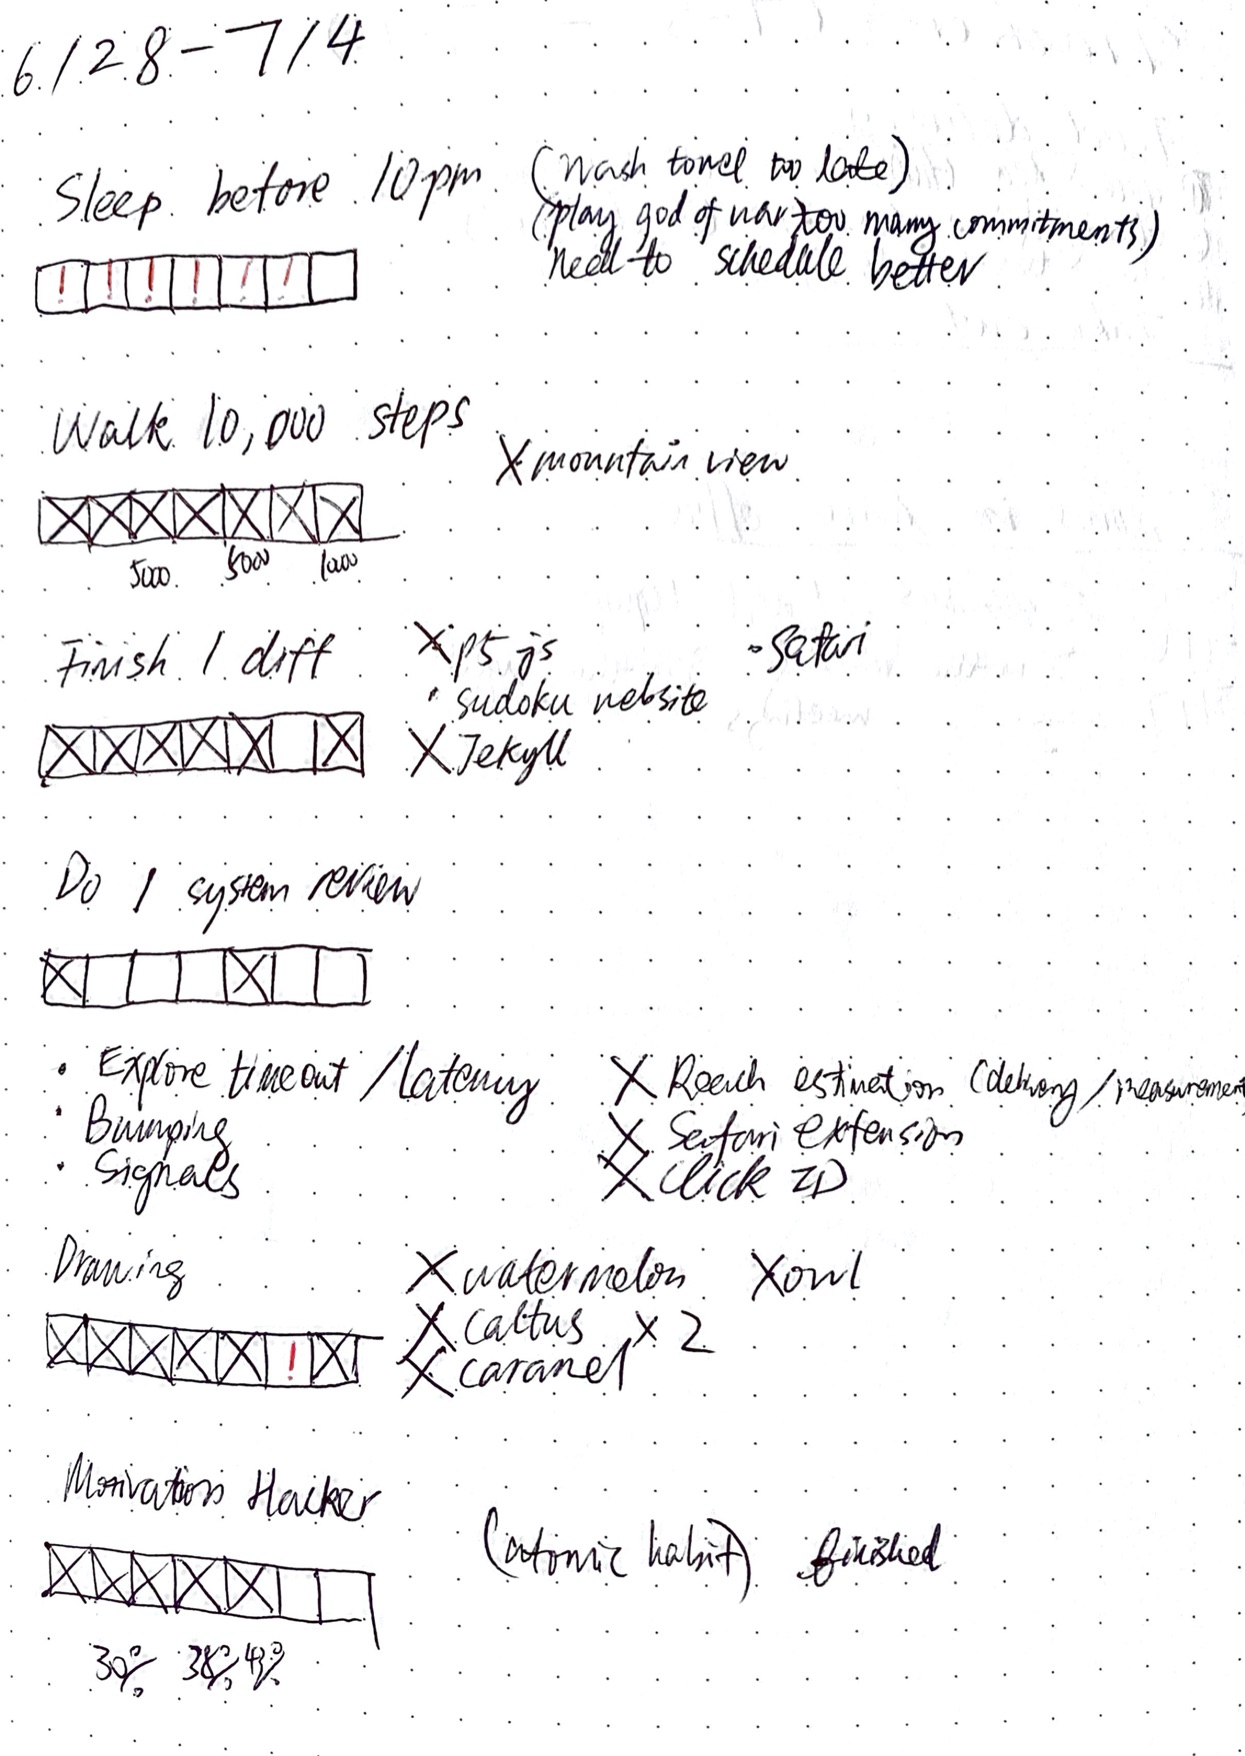 6/28-7/4
Sleep before 10pm (wash towel too late)
(play god of war too many commitments)
need to schedule better
! ! ! ! ! !
Walk 10,000 steps
X mountain view
X X X X X X X
5000 5000 1000
Finish 1 diff X p5 js • Safari
• sudoku website
X X X X X X X Jekyll
Do 1 system review
X X
• Explore timeout / latency X Reach estimation (delivery / measurement
• Bumping X Safari extension
• Signals X Click ID
Drawing X watermelon X owl
X X X X X ! X X Caltus x 2
X caramel
Motivation Hacker
X X X X X (atomic habit) finished
30% 38% 43%